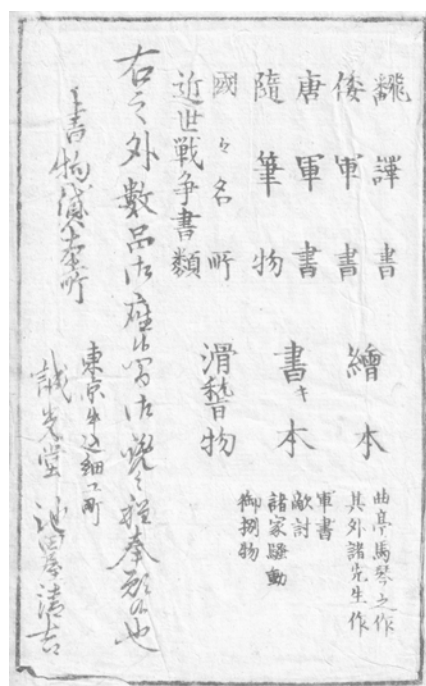 飜譯書
倭軍書
唐軍書
隨筆物
國々名所
近世戦争書類
繪本
曲亭馬琴之作
其外諸先生作
書キ本
軍書
敵討
諸家騒動
御捌物
滑稽物
右之外數品御座候間御覧之程奉願候也
書物貸本所
東京牛込細工町
誠光堂 池田清吉